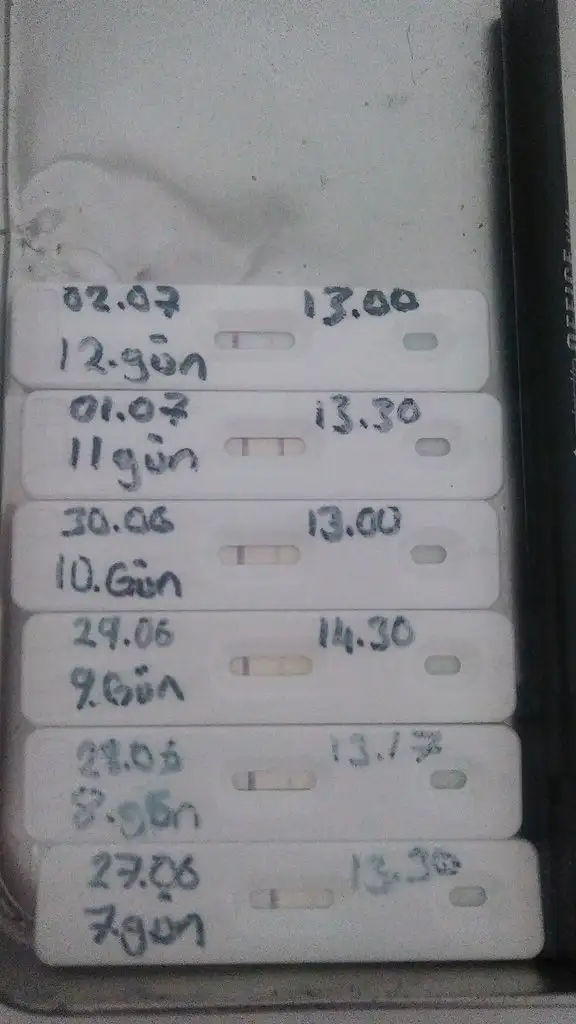 02.07
13.00
12.gün
01.07
13.30
11 gün
30.06
13.00
10.Gün
29.06
14.30
9.Gün
28.06
13.17
8.gün
27.06
13.30
7gün
OFFICE